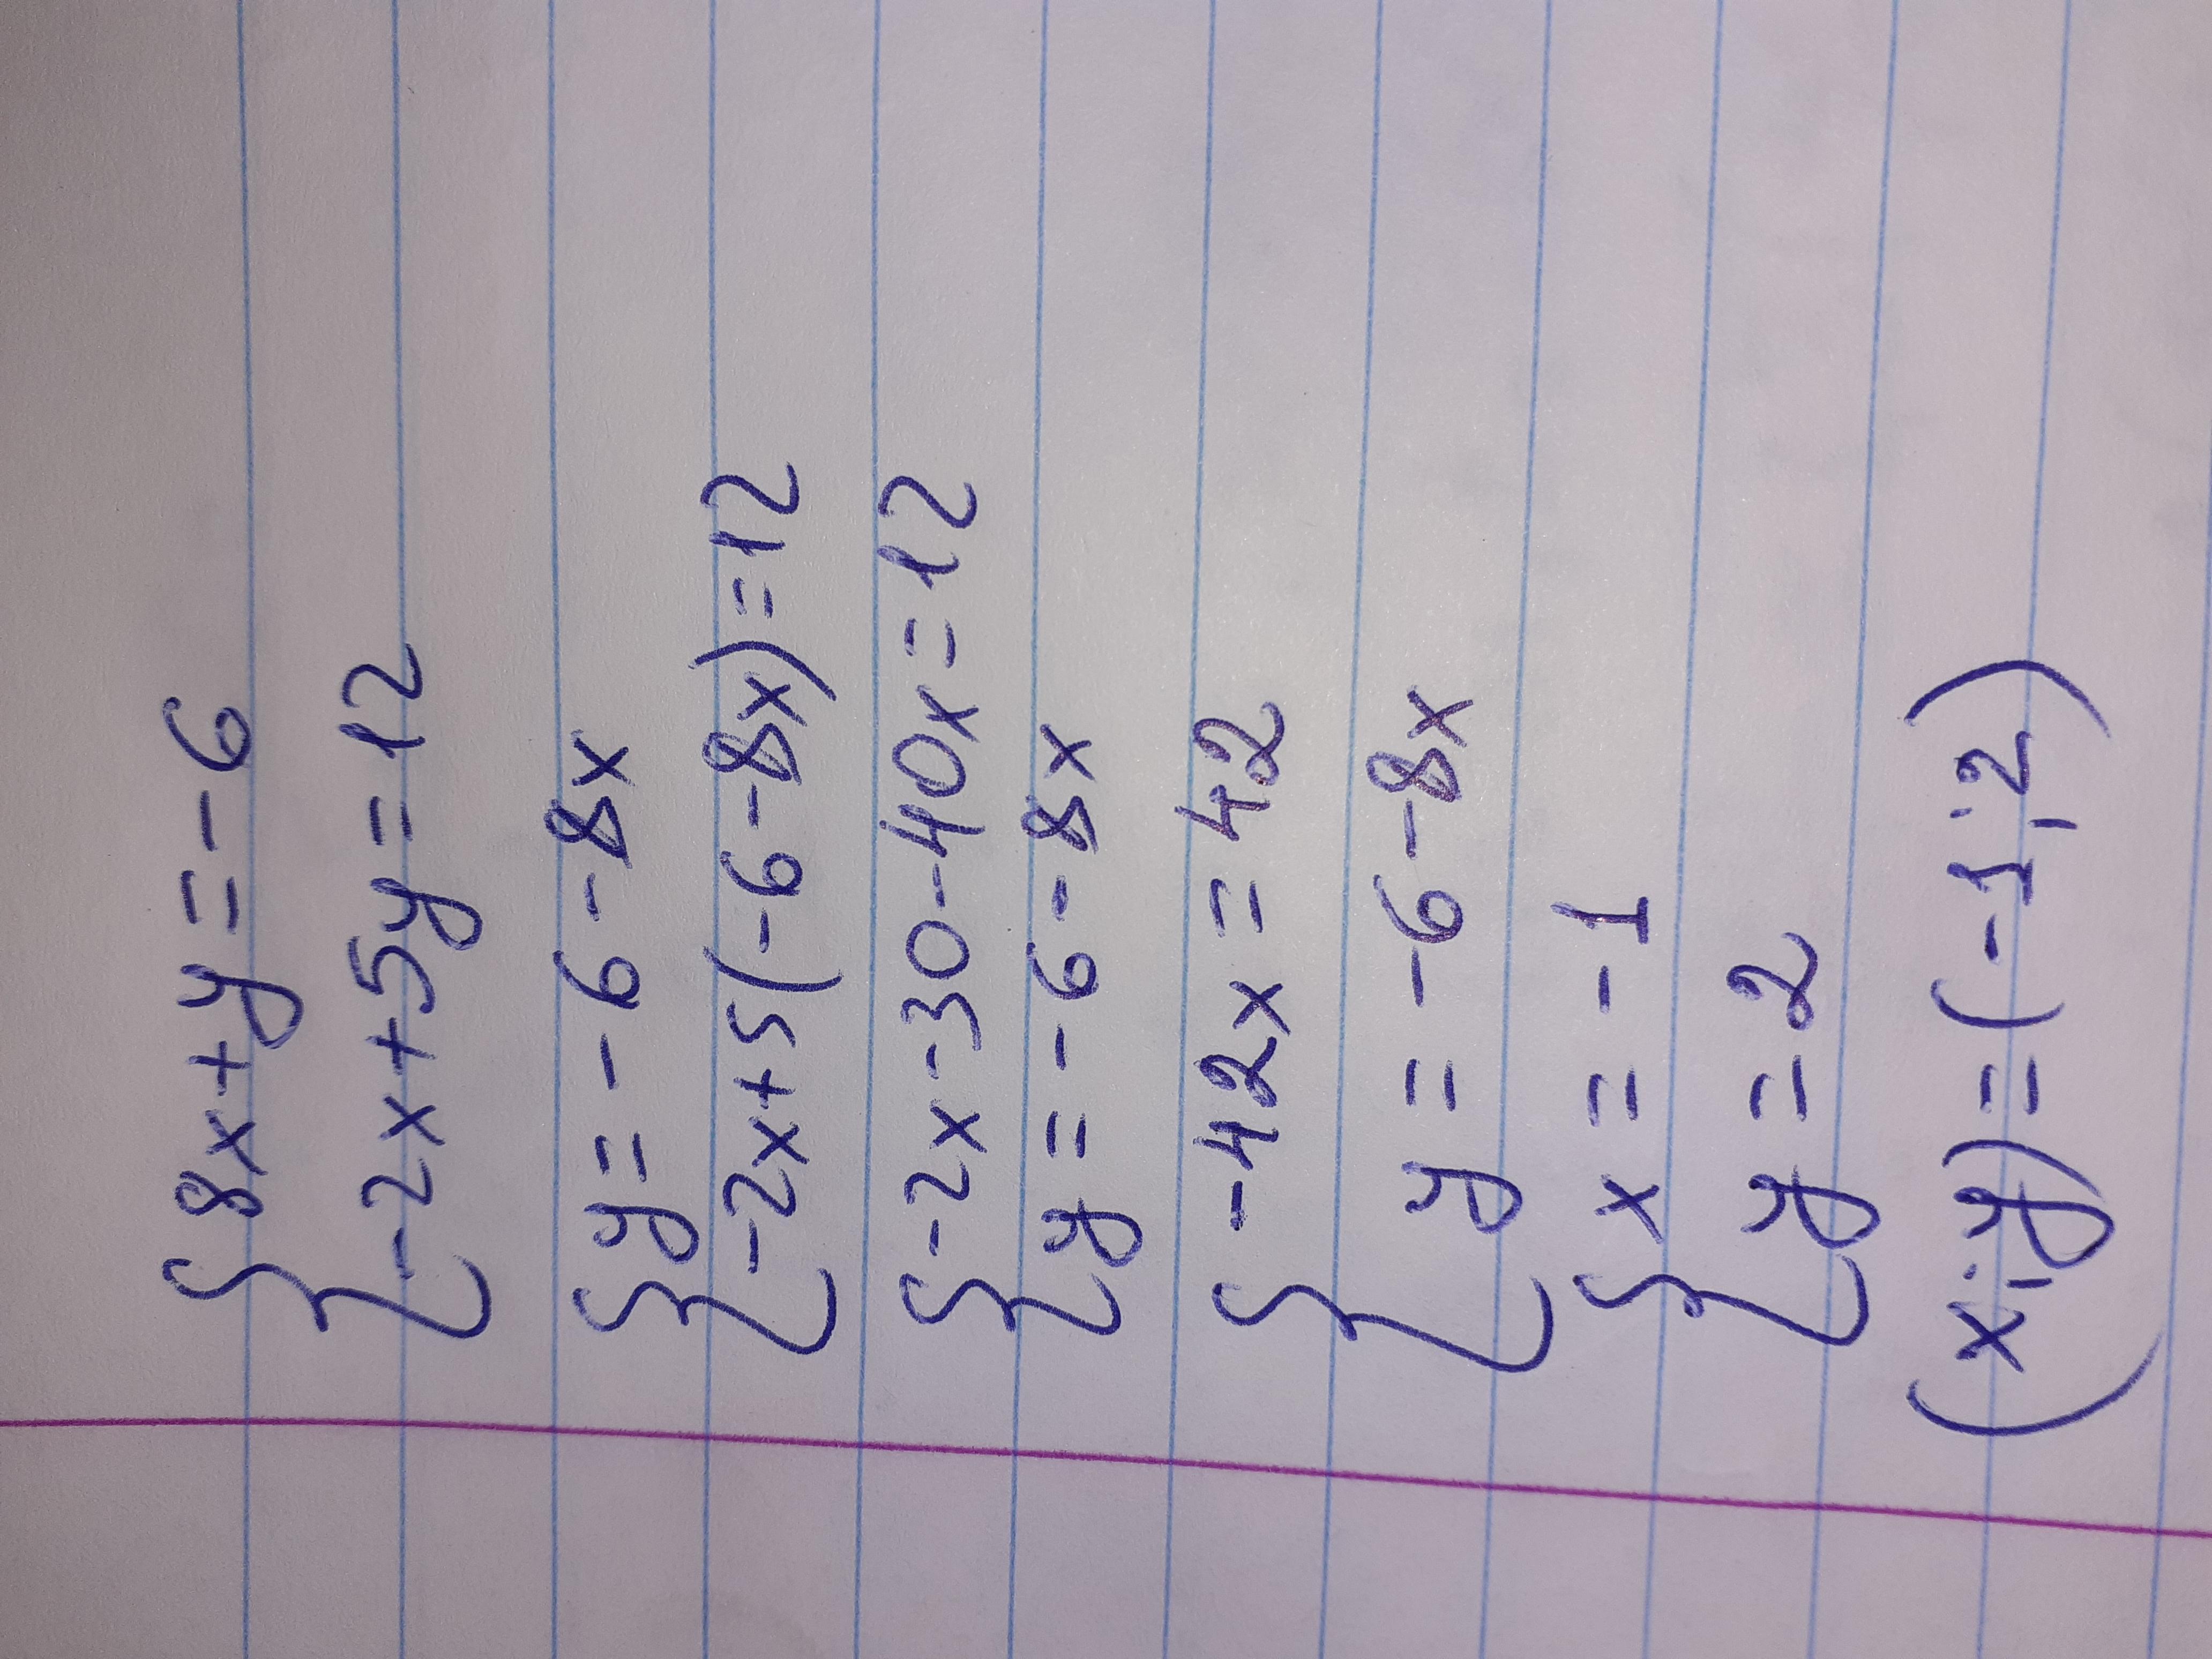 8x+y=-6
-2x+5y=12
y=-6-8x
-2x+5(-6-8x)=12
-2x-30-40x=12
y=-6-8x
-42x=42
y=-6-8x
x=-1
y=2
(x;y)=(-1;2)